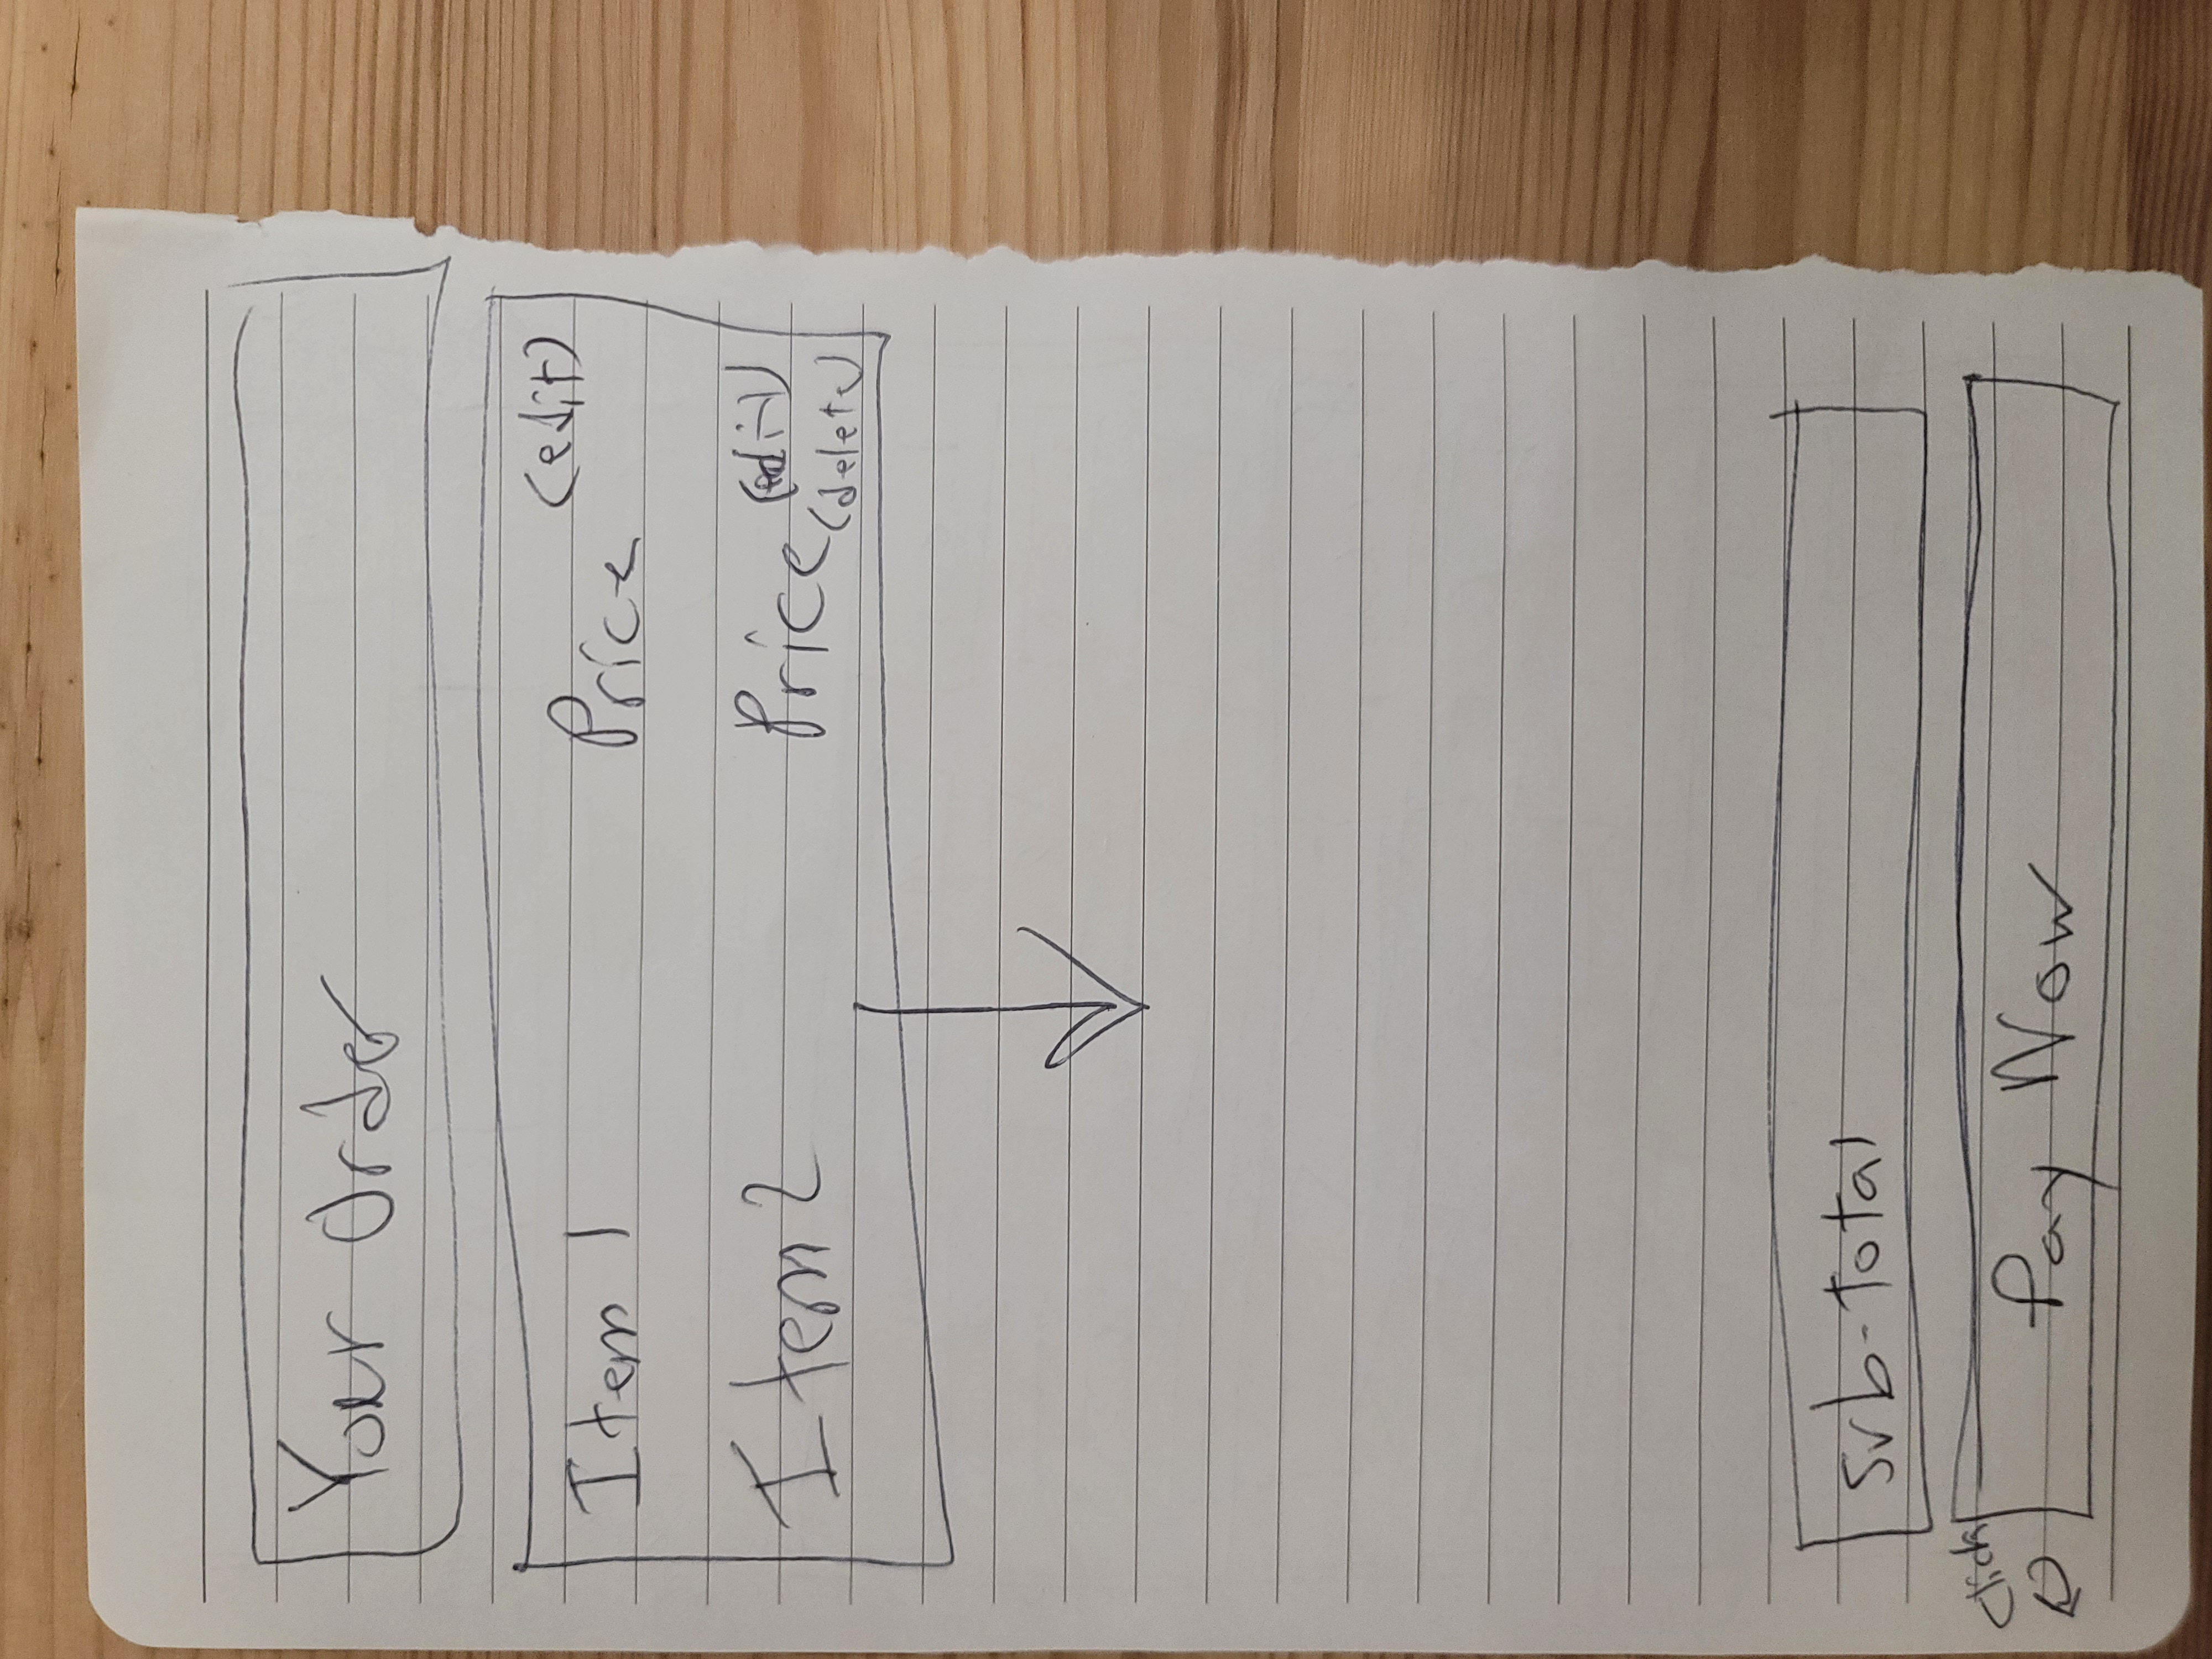 Your Order
Item 1 Price (edit)
Item 2 Price (edit)
(delete)
Sub-total
Pay Now
Click